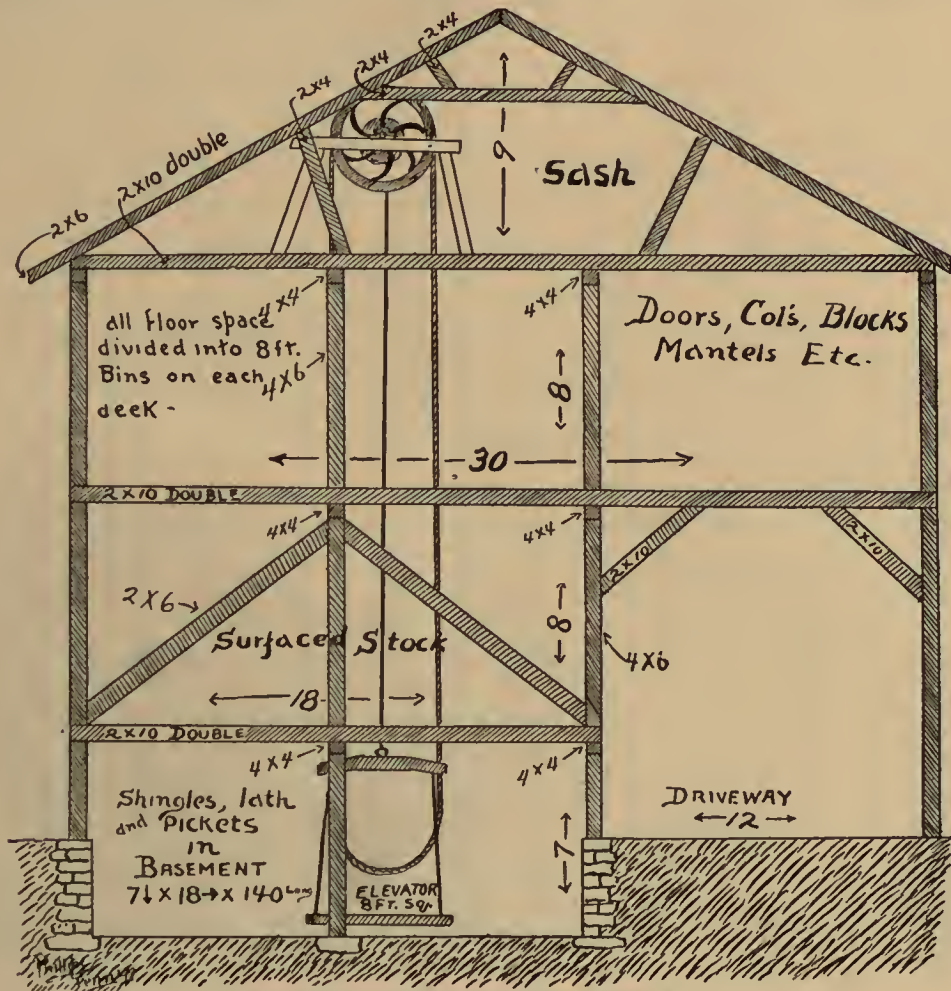 2x4
2x4
2x4
2x10 double
2x6
9
Sash
4x4
4x4
all floor space
divided into 8ft.
Bins on each
deek -
4x6
Doors, Col's, Blocks
Mantels Etc.
8
30
2x10 DOUBLE
4x4
4x4
2x10
2x10
2x6
8
Surfaced Stock
4x6
18
2x10 DOUBLE
4x4
4x4
Shingles, lath
and Pickets
in
BASEMENT
7↓ x 18→ x 140 Long
ELEVATOR
8 FT. Sqr.
7
DRIVEWAY
12